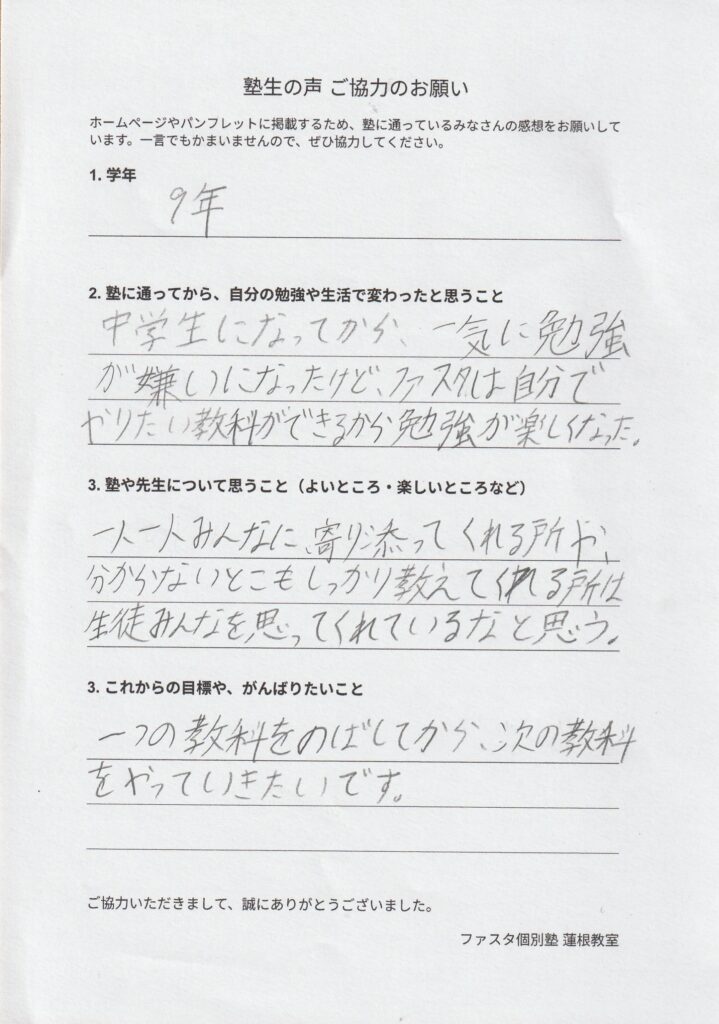 塾生の声 ご協力のお願い
ホームページやパンフレットに掲載するため、塾に通っているみなさんの感想をお願いして
います。一言でもかまいませんので、ぜひ協力してください。
1. 学年
9年
2. 塾に通ってから、自分の勉強や生活で変わったと思うこと
中学生になってから、一気に勉強
が嫌いになったけど、ファスタは自分で
やりたい教科ができるから勉強が楽しくなった。
3. 塾や先生について思うこと（よいところ・楽しいところなど）
一人一人みんなに、寄り添ってくれる所や、
分からないとこもしっかり教えてくれる所は
生徒みんなを思ってくれているなと思う。
3. これからの目標や、がんばりたいこと
一つの教科をのばしてから、次の教科
をやっていきたいです。
ご協力いただきまして、誠にありがとうございました。
ファスタ個別塾 蓮根教室